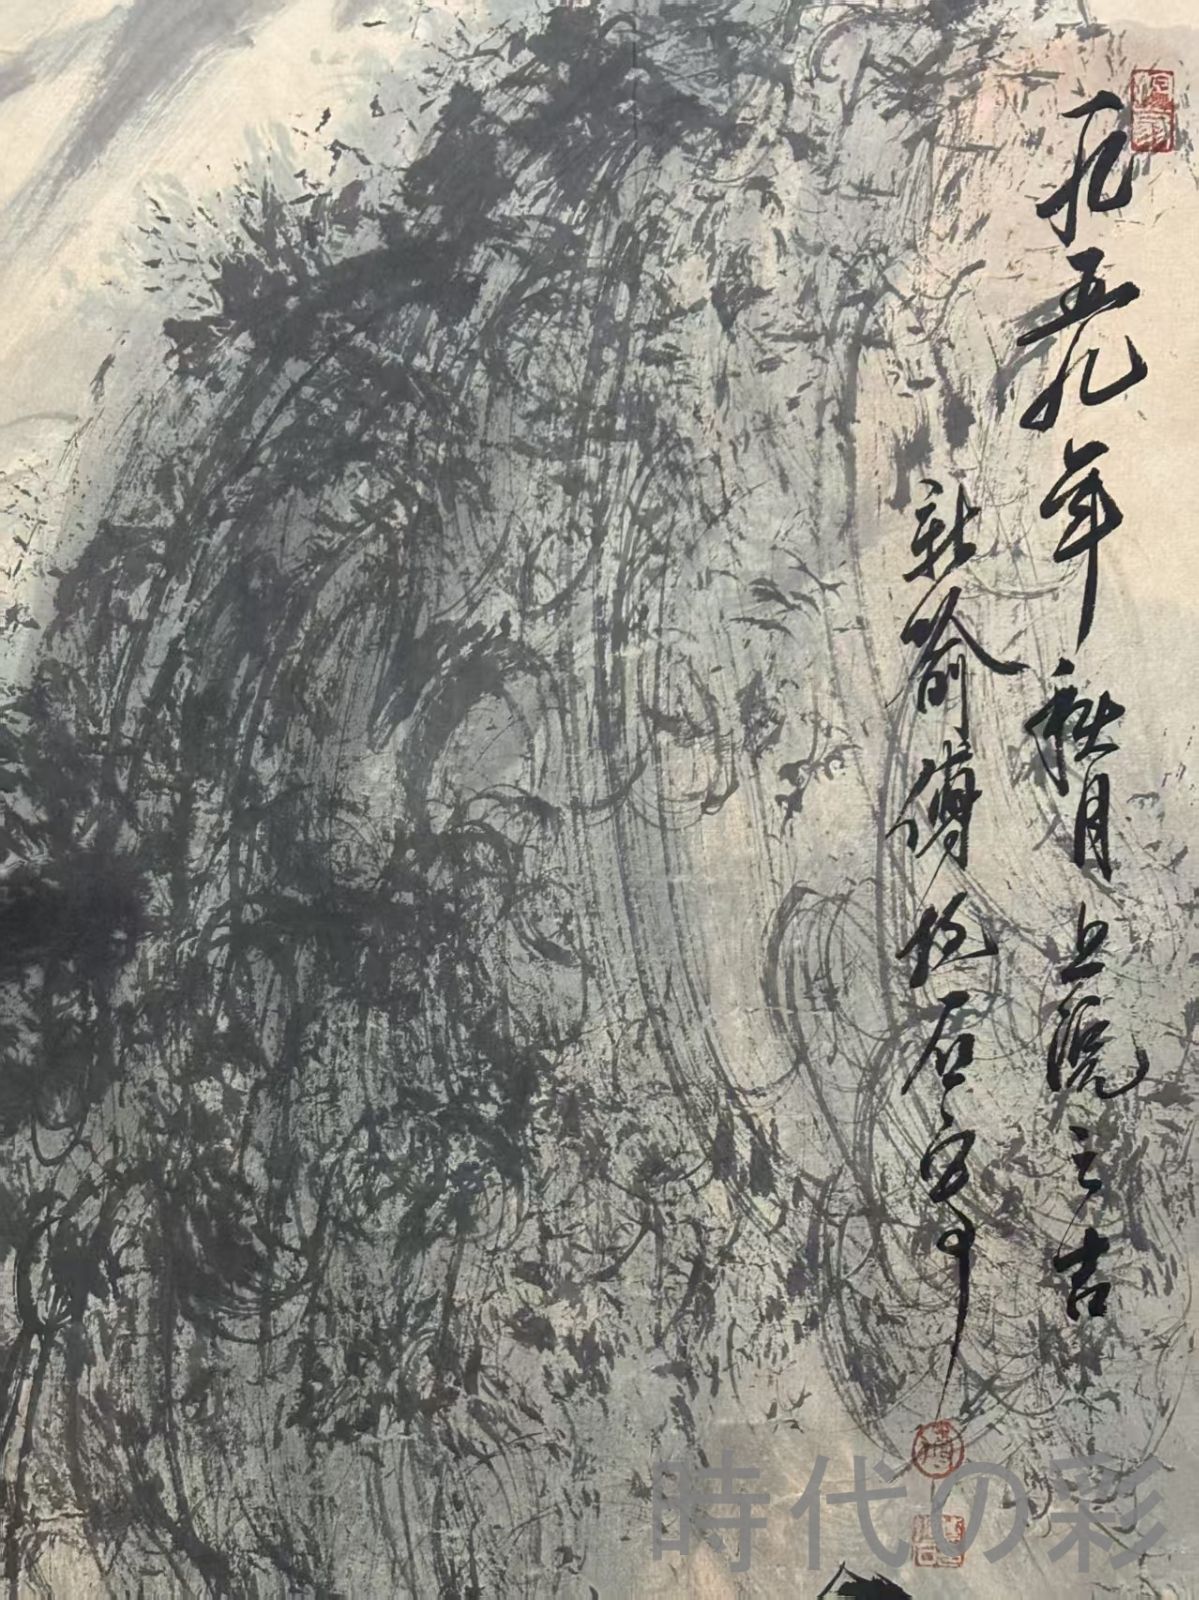 一九五九年秋月上浣之吉
新喻傅抱石
傅
時代の彩